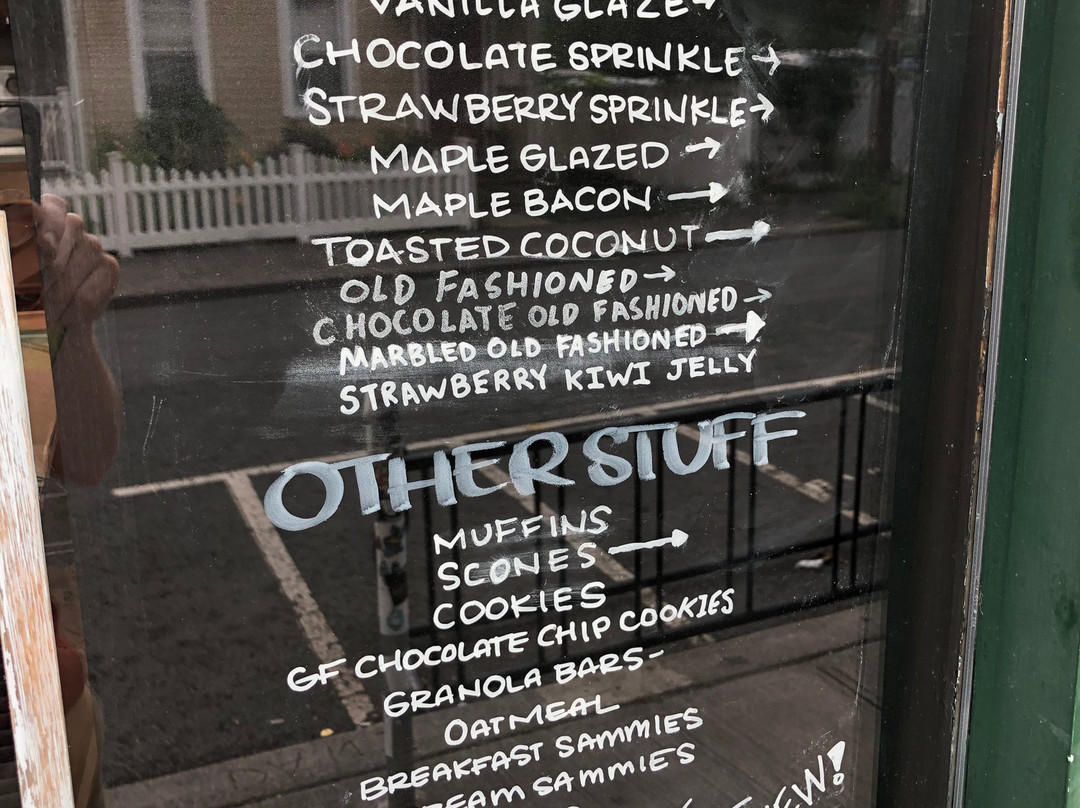 VANILLA GLAZE→
CHOCOLATE SPRINKLE→
STRAWBERRY SPRINKLE→
MAPLE GLAZED →
MAPLE BACON →
TOASTED COCONUT→
OLD FASHIONED→
CHOCOLATE OLD FASHIONED→
MARBLED OLD FASHIONED→
STRAWBERRY KIWI JELLY
OTHER STUFF
MUFFINS
SCONES→
COOKIES
GF CHOCOLATE CHIP COOKIES
GRANOLA BARS-
OATMEAL
BREAKFAST SAMMIES
SAMMIES